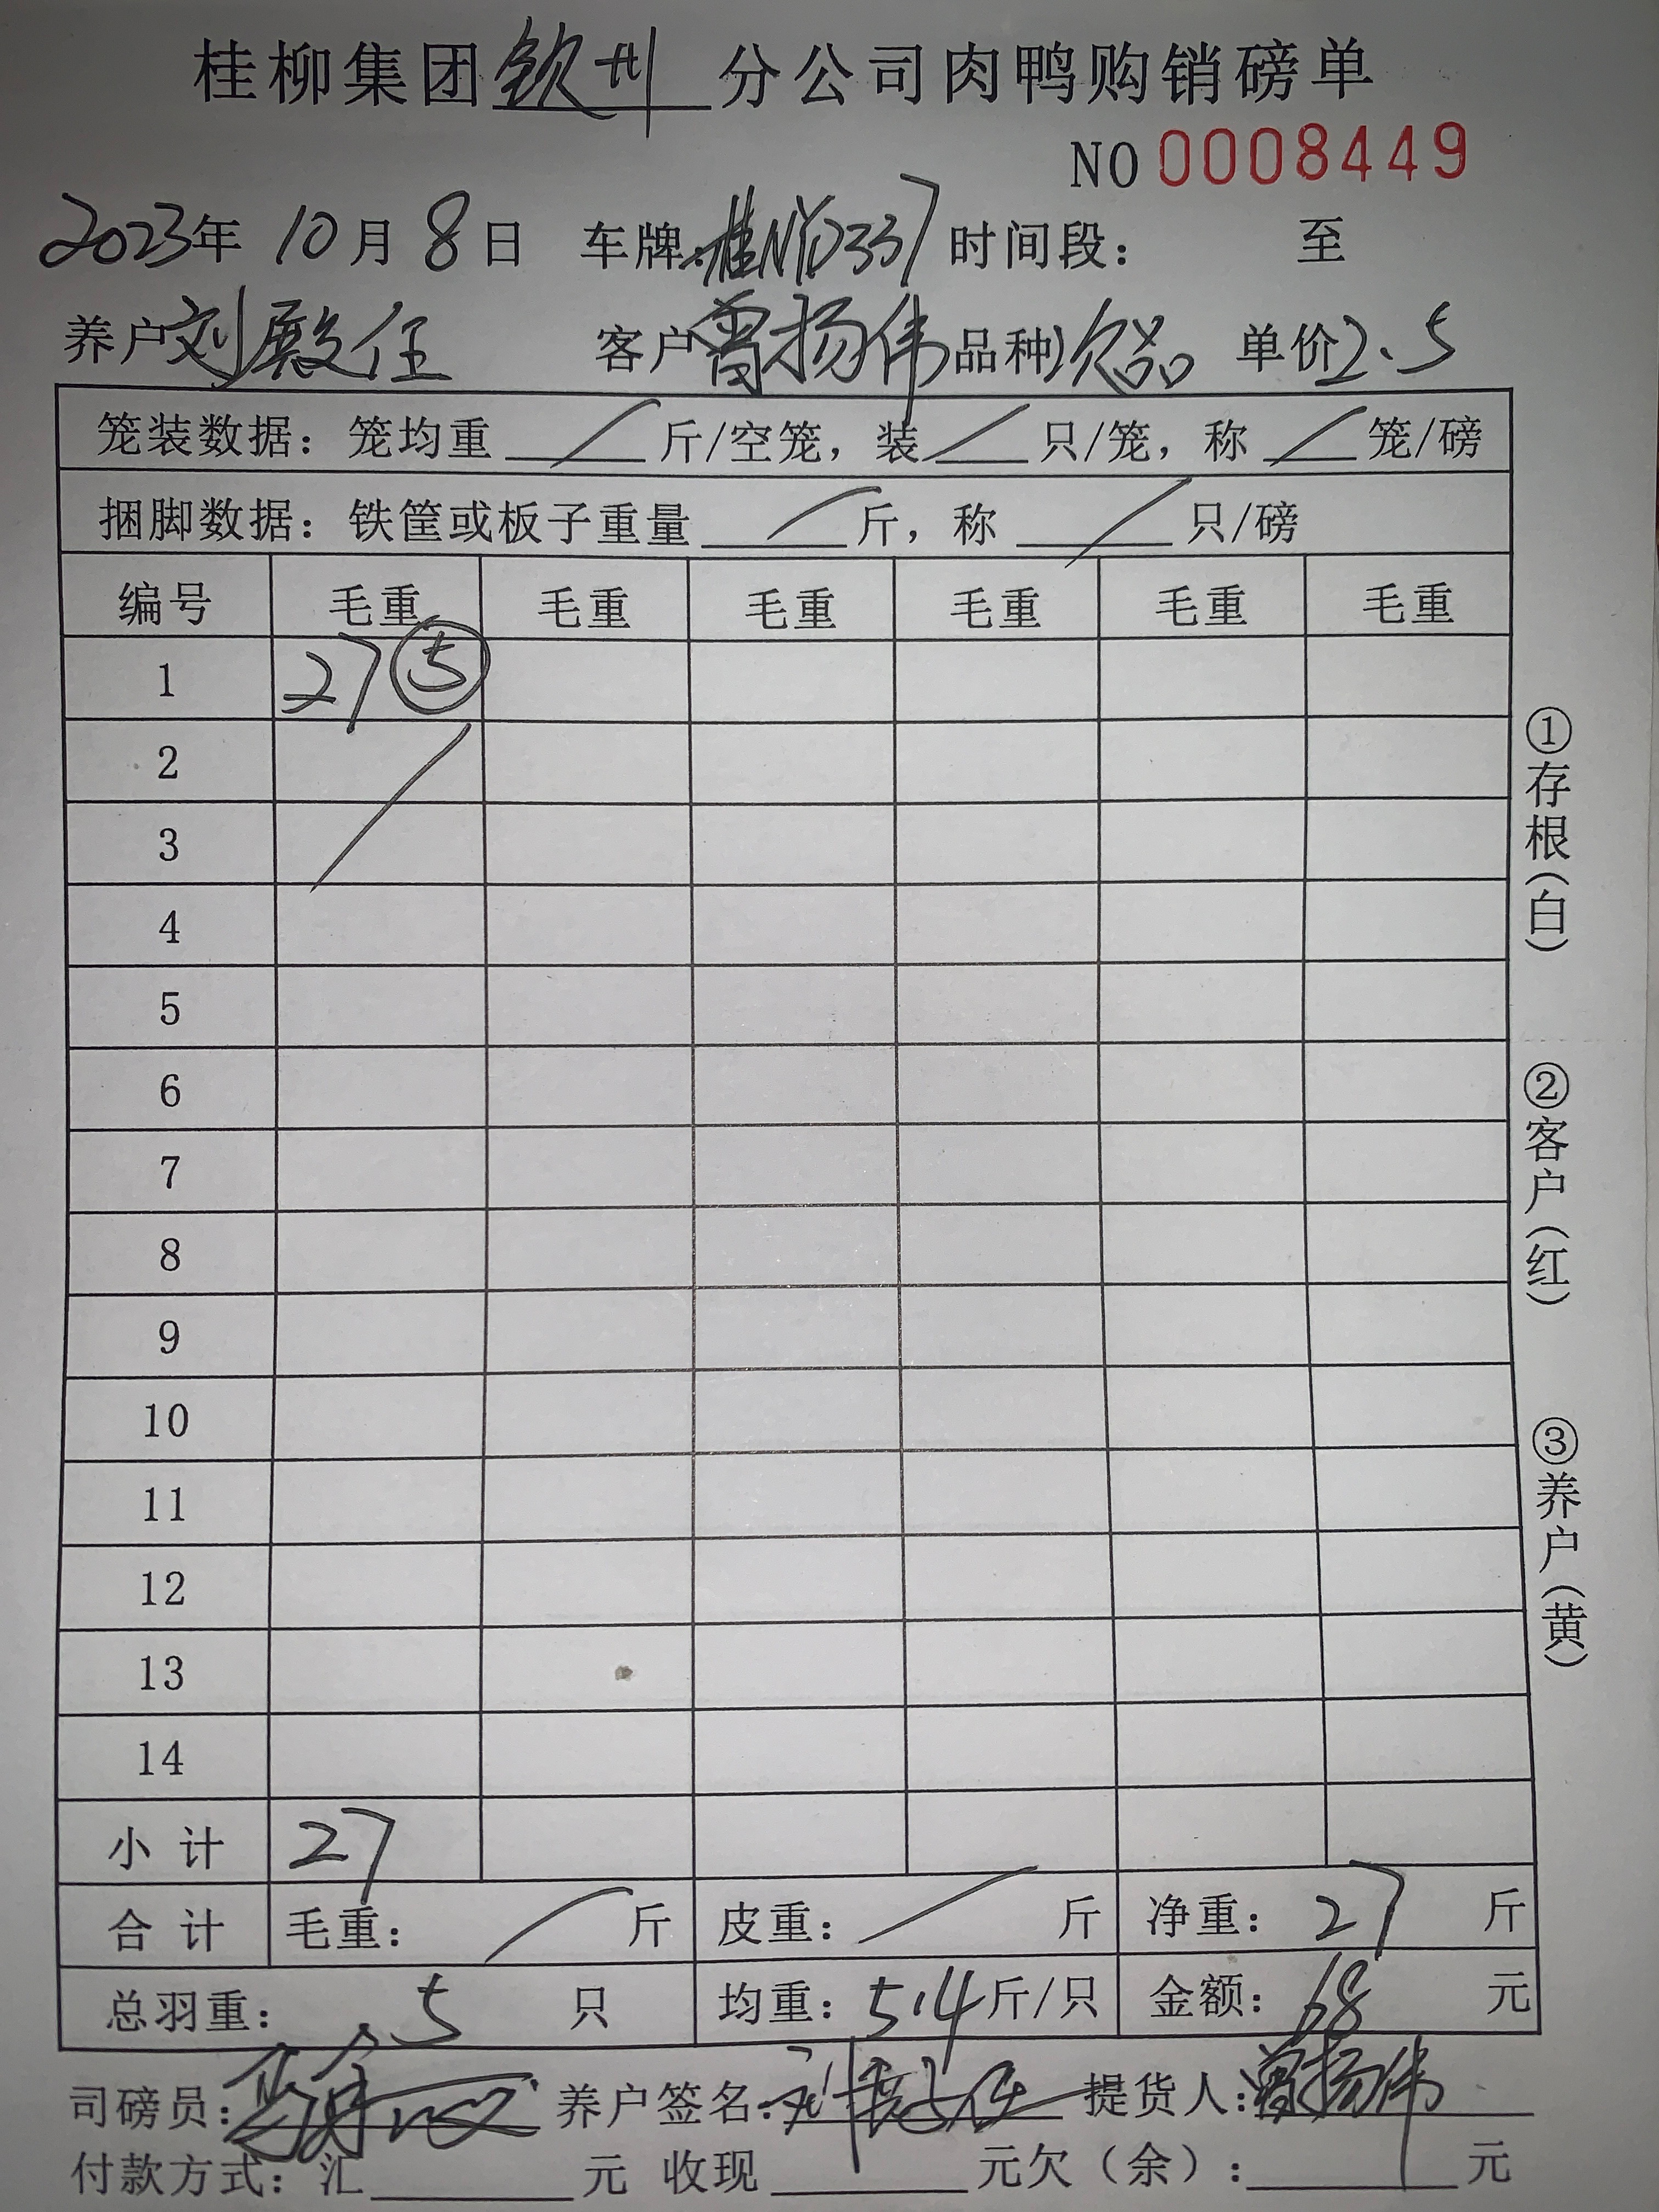 桂柳集团钦州分公司肉鸭购销磅单
NO 0008449
2023年 10月 8日 车牌:桂NY0337 时间段: 至
养户 刘殿任 客户 曾扬伟 品种 次品 单价 2.5
笼装数据: 笼均重 / 斤/空笼, 装 / 只/笼, 称 / 笼/磅
捆脚数据: 铁筐或板子重量 / 斤, 称 / 只/磅
编号 毛重 毛重 毛重 毛重 毛重 毛重
1 27 ⑤
2 /
3
4
5
6
7
8
9
10
11
12
13
14
小计 27
合计 毛重: / 斤 皮重: / 斤 净重: 27 斤
总羽重: 5 只 均重: 5.4 斤/只 金额: 68 元
司磅员: 养户签名: 刘殿任 提货人: 曾扬伟
付款方式: 汇 元 收现 元欠(余): 元
①存根(白)
②客户(红)
③养户(黄)